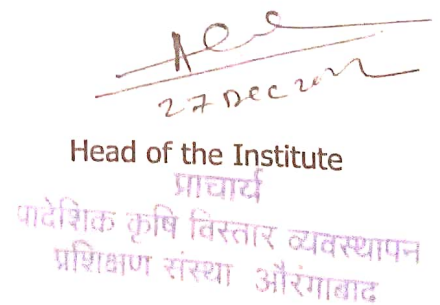 27 DEC 2022
Head of the Institute
प्राचार्य
प्रादेशिक कृषि विस्तार व्यवस्थापन
प्रशिक्षण संस्था औरंगाबाद